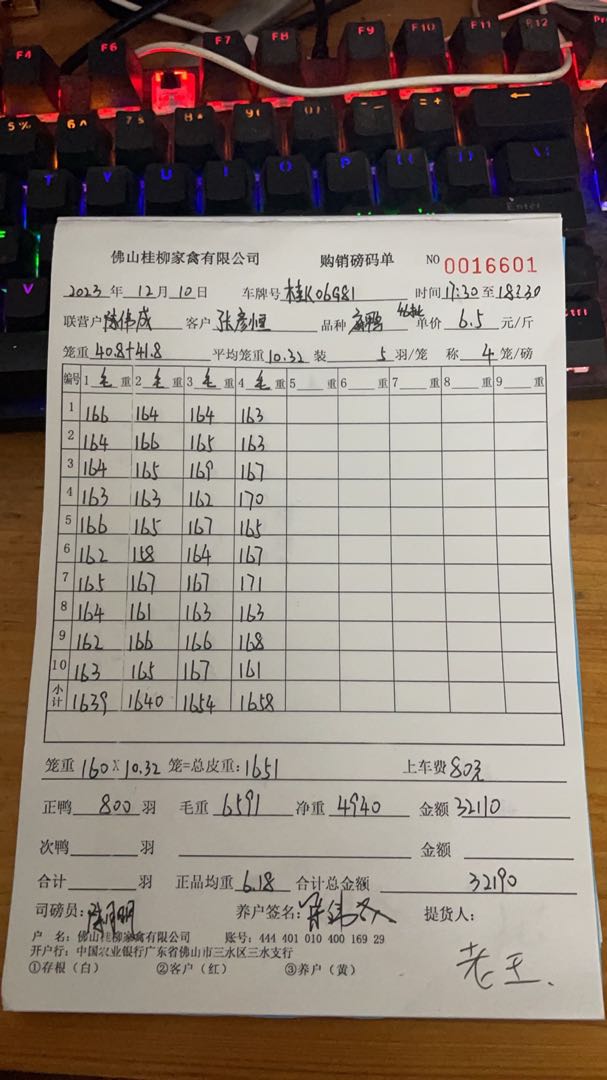 F4 F6 F7 F8 F9 F10 F11 F12
5 % 6 ^ 7 & 8 * 9 ( 0 ) - = +
T Y U I O P
Enter
佛山桂柳家禽有限公司 购销磅码单 NO 0016601
2023 年 12 月 10 日 车牌号 桂K06G81 时间 17:30 至 18:30
联营户 陈伟成 客户 张彦恒 品种 单价 6.5 元/斤
笼重 40.8+41.8 平均笼重 10.32 装 5 羽/笼 称 4 笼/磅
编号 1 毛 重 2 毛 重 3 毛 重 4 毛 重 5 重 6 重 7 重 8 重 9 重
1 166 164 164 163
2 164 166 165 163
3 164 165 169 167
4 163 163 162 170
5 166 165 167 165
6 162 158 164 167
7 165 167 167 171
8 164 161 163 163
9 162 166 166 168
10 163 165 167 161
小计 1639 1640 1654 1658
笼重 160 X 10.32 笼=总皮重: 1651 上车费 80元
正鸭 800 羽 毛重 6591 净重 4940 金额 32110
次鸭 羽 金额
合计 羽 正品均重 6.18 合计总金额 32190
司磅员: 养户签名: 提货人:
户 名: 佛山桂柳家禽有限公司 账号: 444 401 010 400 169 29
开户行: 中国农业银行广东省佛山市三水区三水支行
①存根(白) ②客户(红) ③养户(黄)
老王.